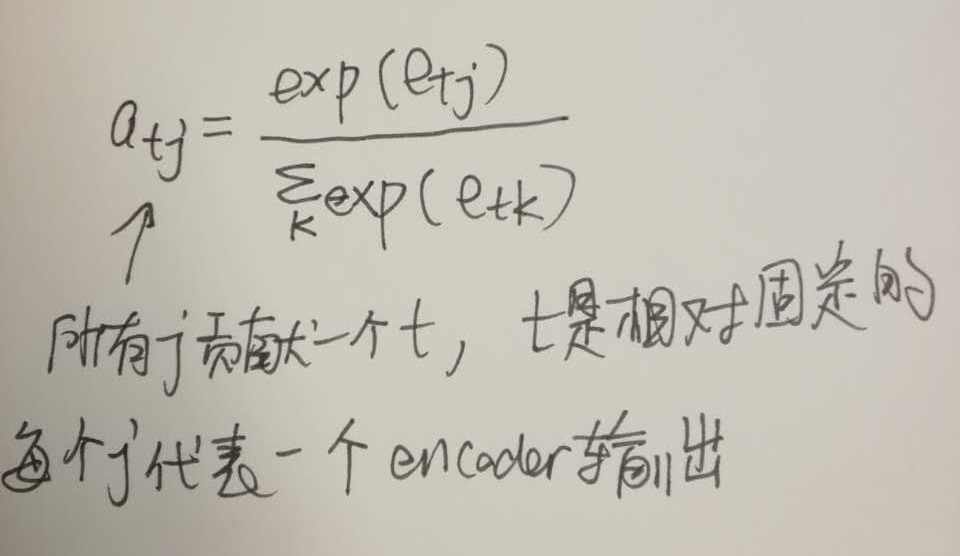 a_{tj} = \frac{exp(e_{tj})}{\sum_{k} exp(e_{tk})}
所有j贡献一个t，t是相对固定的
每个j代表一个encoder输出